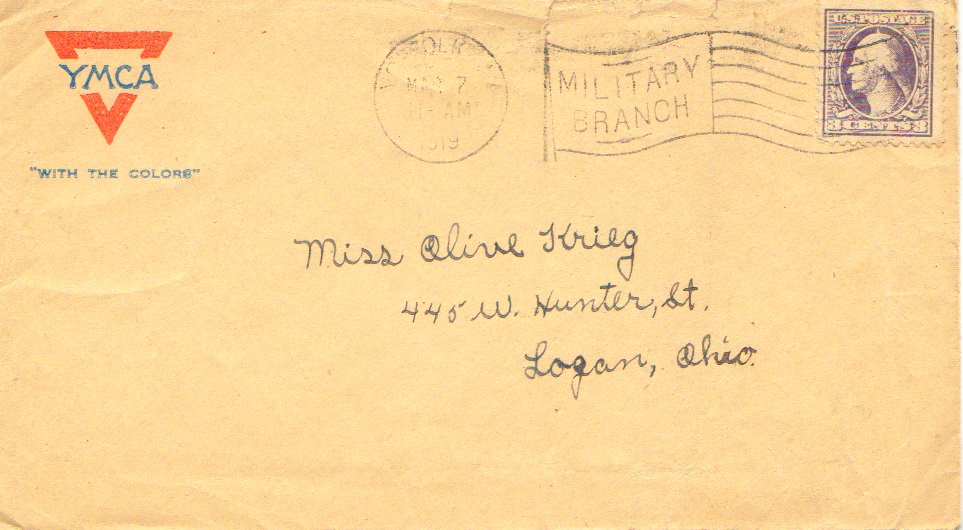 YMCA
"WITH THE COLORS"
MAR 7
AM
1919
MILITARY
BRANCH
U.S. POSTAGE
3 CENTS 3
Miss Olive Krieg
445 W. Hunter, St.
Logan, Ohio.